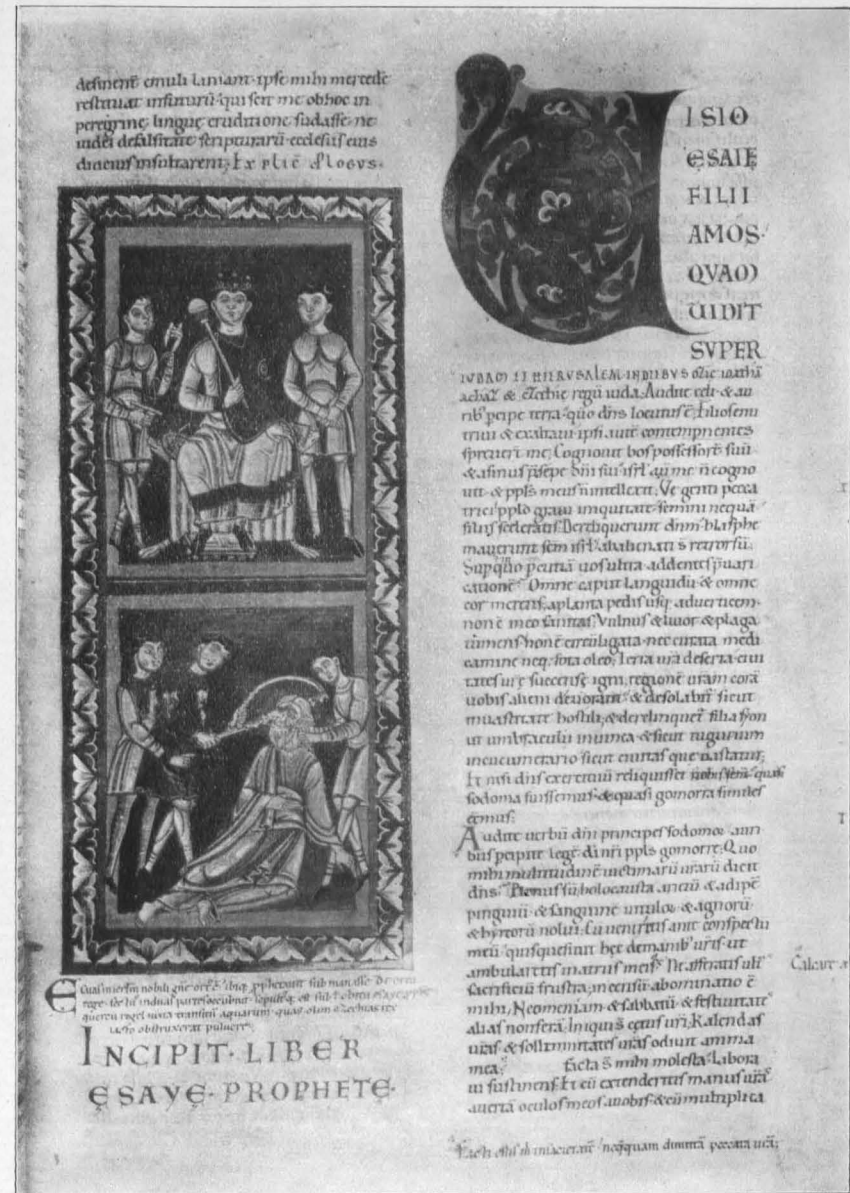 desinent emuli laniant· ipse mihi mercedē
restituat in futurū· qui scit me ob hoc in
peregrine lingue eruditione sudasse· ne
iudei de falsitate scripturarū· ecclesiis eius
diutius insultarent; Explic̄ ꝓlogus·
Esaias in ierlm̄ nobili gn̄e ort' ē·
rege· sectus in duas partes occubuit· sepultusq; est sub
quercu rogel iuxta transitū aquarum· quas olim ezechias rex
iacto obstruxerat puluere;
INCIPIT· LIBER
ĘSAYE· PROPHETE·
VISIO
ĘSAIĘ
FILII
AMOS·
QVAM
UIDIT
SVPER
IVDAM ET HIERVSALEM· IN DIEBVS ozie ioathā
achaz & ezechie regū iuda; Audite celi· & au
rib' ꝑcipe terra· quō dn̄s locutus ē; Filios enu
triui & exaltaui· ipsi autē contempnentes
spreuert̄ me; Cognouit bos possessorē suū
& asinus p̄sepe dn̄i sui· isrl̄ aū me n̄ cogno
uit· & ppls̄ meus n̄ intellexit; Ve genti pecca
trici· pplō graui iniquitate· semini nequā
filiis sceleratis; Dereliquerunt dnm̄· blasphe
mauerunt sc̄m isrl̄· abalienati s̄ retrorsū;
Sup quo ꝑcutiā uos ultra· addentes p̄uari
cationē? Omne caput languidū· & omne
cor merens; a planta pedis usq; ad uerticem·
non ē in eo sanitas; Vulnus & liuor & plaga
tumens· non ē circūligata· nec curata medi
camine· neq; fota oleo; Terra urā deserta· ciui
tates urē succense igni; regionē uram corā
uobis alieni deuorant· & desolabit̄ sicut
in uastitate hostili; & derelinquet̄ filia syon
ut umbraculū in uinea· & sicut tugurium
in cucumerario· sicut ciuitas que uastatur;
Et nisi dn̄s exercituū reliquisset nobis sem̄· quasi
sodoma fuissemus· & quasi gomorra similes
essemus;
Audite uerbū dn̄i principes sodomoꝝ· auri
bus ꝑcipite legē di n̄ri ppls̄ gomorre; Quo
mihi multitudinē uictimarū urarū dicit
dn̄s? Plenus sū; holocausta arietū & adipē
pinguiū· & sanguinē uituloꝝ & agnorū·
& hyrcorū nolui; Cū ueniretis ante conspectū
meū· quis quesiuit hec de manib' uris· ut
ambularetis in atriis meis? Ne afferatis ult̄
sacrificiū frustra; incensū abominatio ē
mihi; Neomeniam & sabbatū & festiuitates
alias non ferā; Iniqui s̄ cetus uri; Kalendas
uras & sollemnitates uras odiuit anima
mea; facta s̄ mihi molesta· labora
ui sustinens; Et cū extenderitis manus uras
auertā oculos meos a uobis· & cū multiplica